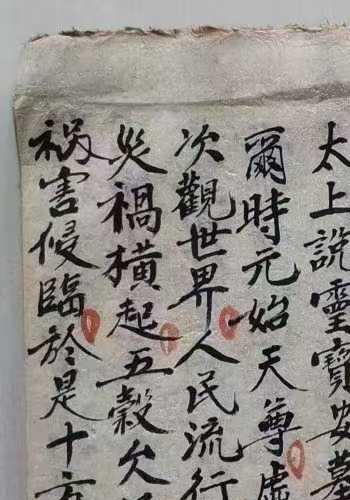 太上說靈寶安墓
爾時元始天尊虛
次觀世界人民流行
災禍橫起五穀欠
祸害侵臨於是十方